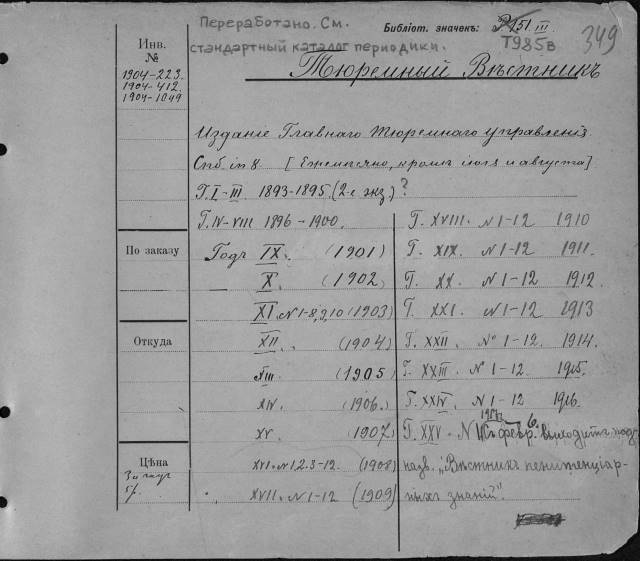 Переработано. См.
стандартный каталог периодики.
Библіот. значекъ:
Т985в
349
Инв.
№
1904-223.
1904-412.
1904-1099
Тюремный Вѣстникъ
Изданіе Главнаго Тюремнаго управленія.
Спб. in 8. [Ежемѣсячно, кромѣ іюля и августа]
Г. I-III 1893-1895 (2-е экз.) ?
Г. IV-VIII 1896-1900.
По заказу
Годъ IX. (1901)
X. (1902)
XI № 1-8, 9, 10 (1903)
Откуда
XII. (1904)
XIII. (1905)
XIV. (1906.
XV. (1907)
Цѣна
За
5 р.
XVI. № 1.2.3-12. (1908)
" XVII. № 1-12 (1909)
Г. XVIII. № 1-12 1910
Г. XIX. № 1-12. 1911.
Г. XX. № 1-12 1912.
Г. XXI. № 1-12 1913
Г. XXII. № 1-12. 1914.
Г. XXIII. № 1-12. 1915.
Г. XXIV. № 1-12 1916.
1917.
Г. XXV. № 1 Съ февр. выходитъ подъ
назв. „Вѣстникъ пенитенціар-
ныхъ знаній".